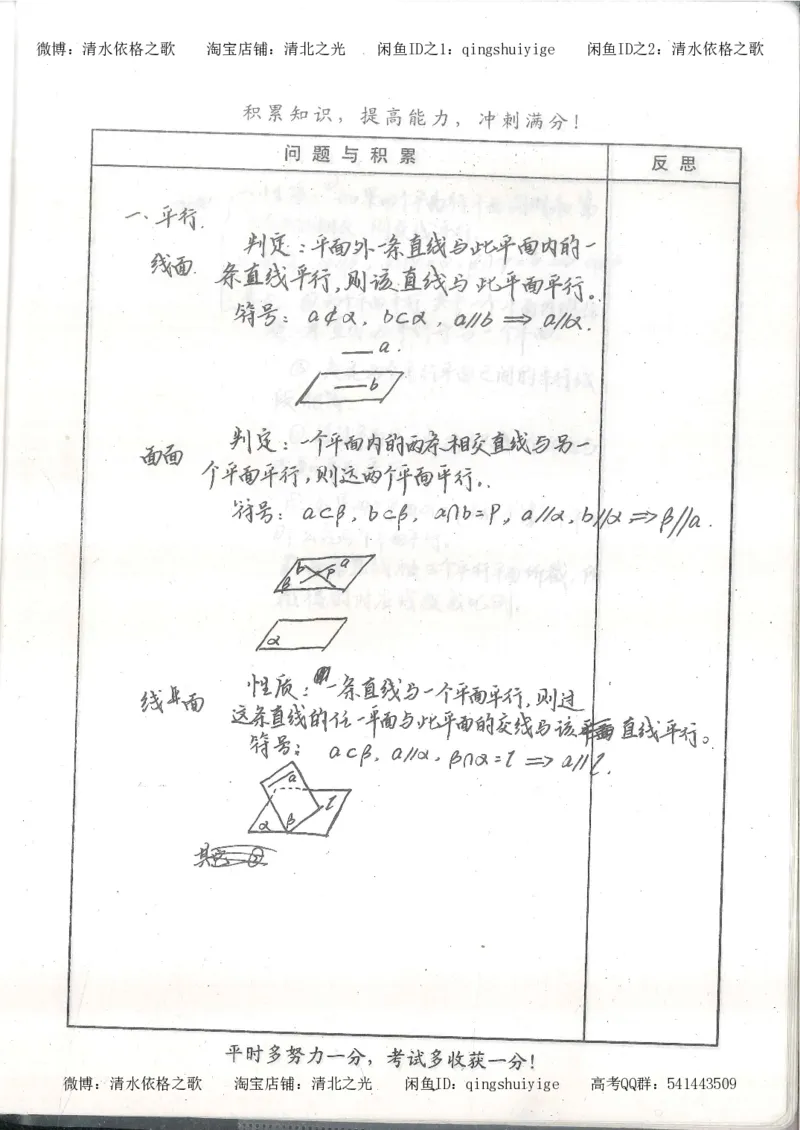 微博：清水依格之歌 淘宝店铺：清北之光 闲鱼ID之1：qingshuiyige 闲鱼ID之2：清水依格之歌
积累知识，提高能力，冲刺满分！
问题与积累 反思
一、平行.
判定：平面外一条直线与此平面内的一
线面. 条直线平行,则该直线与此平面平行。
符号：a⊄α, b⊂α, a∥b ⇒ a∥α.
a.
b
判定：一个平面内的两条相交直线与另一
面面 个平面平行,则这两个平面平行.
符号：a⊂β, b⊂β, a∩b=P, a∥α, b∥α ⇒ β∥a.
b P a
β
α
性质：一条直线与一个平面平行,则过
线面 这条直线的任一平面与此平面的交线与该直线平行。
符号：a⊂β, a∥α, β∩α=l ⇒ a∥l.
a
l
α β
平时多努力一分，考试多收获一分！
微博：清水依格之歌 淘宝店铺：清北之光 闲鱼ID：qingshuiyige 高考QQ群：541443509